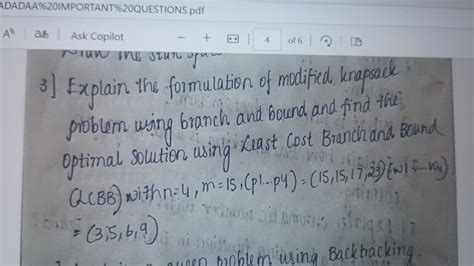 ADADAA%20IMPORTANT%20QUESTIONS.pdf
Ask Copilot
4 of 6
3] Explain the formulation of modified knapsack
problem using branch and bound and find the
optimal solution using Least Cost Branch and Bound
(LCBB) with n=4, m=15, (p1...p4) = (15,15,17,23) (w1 =...w4)
= (3,5,6,9).
problem using Backtracking.